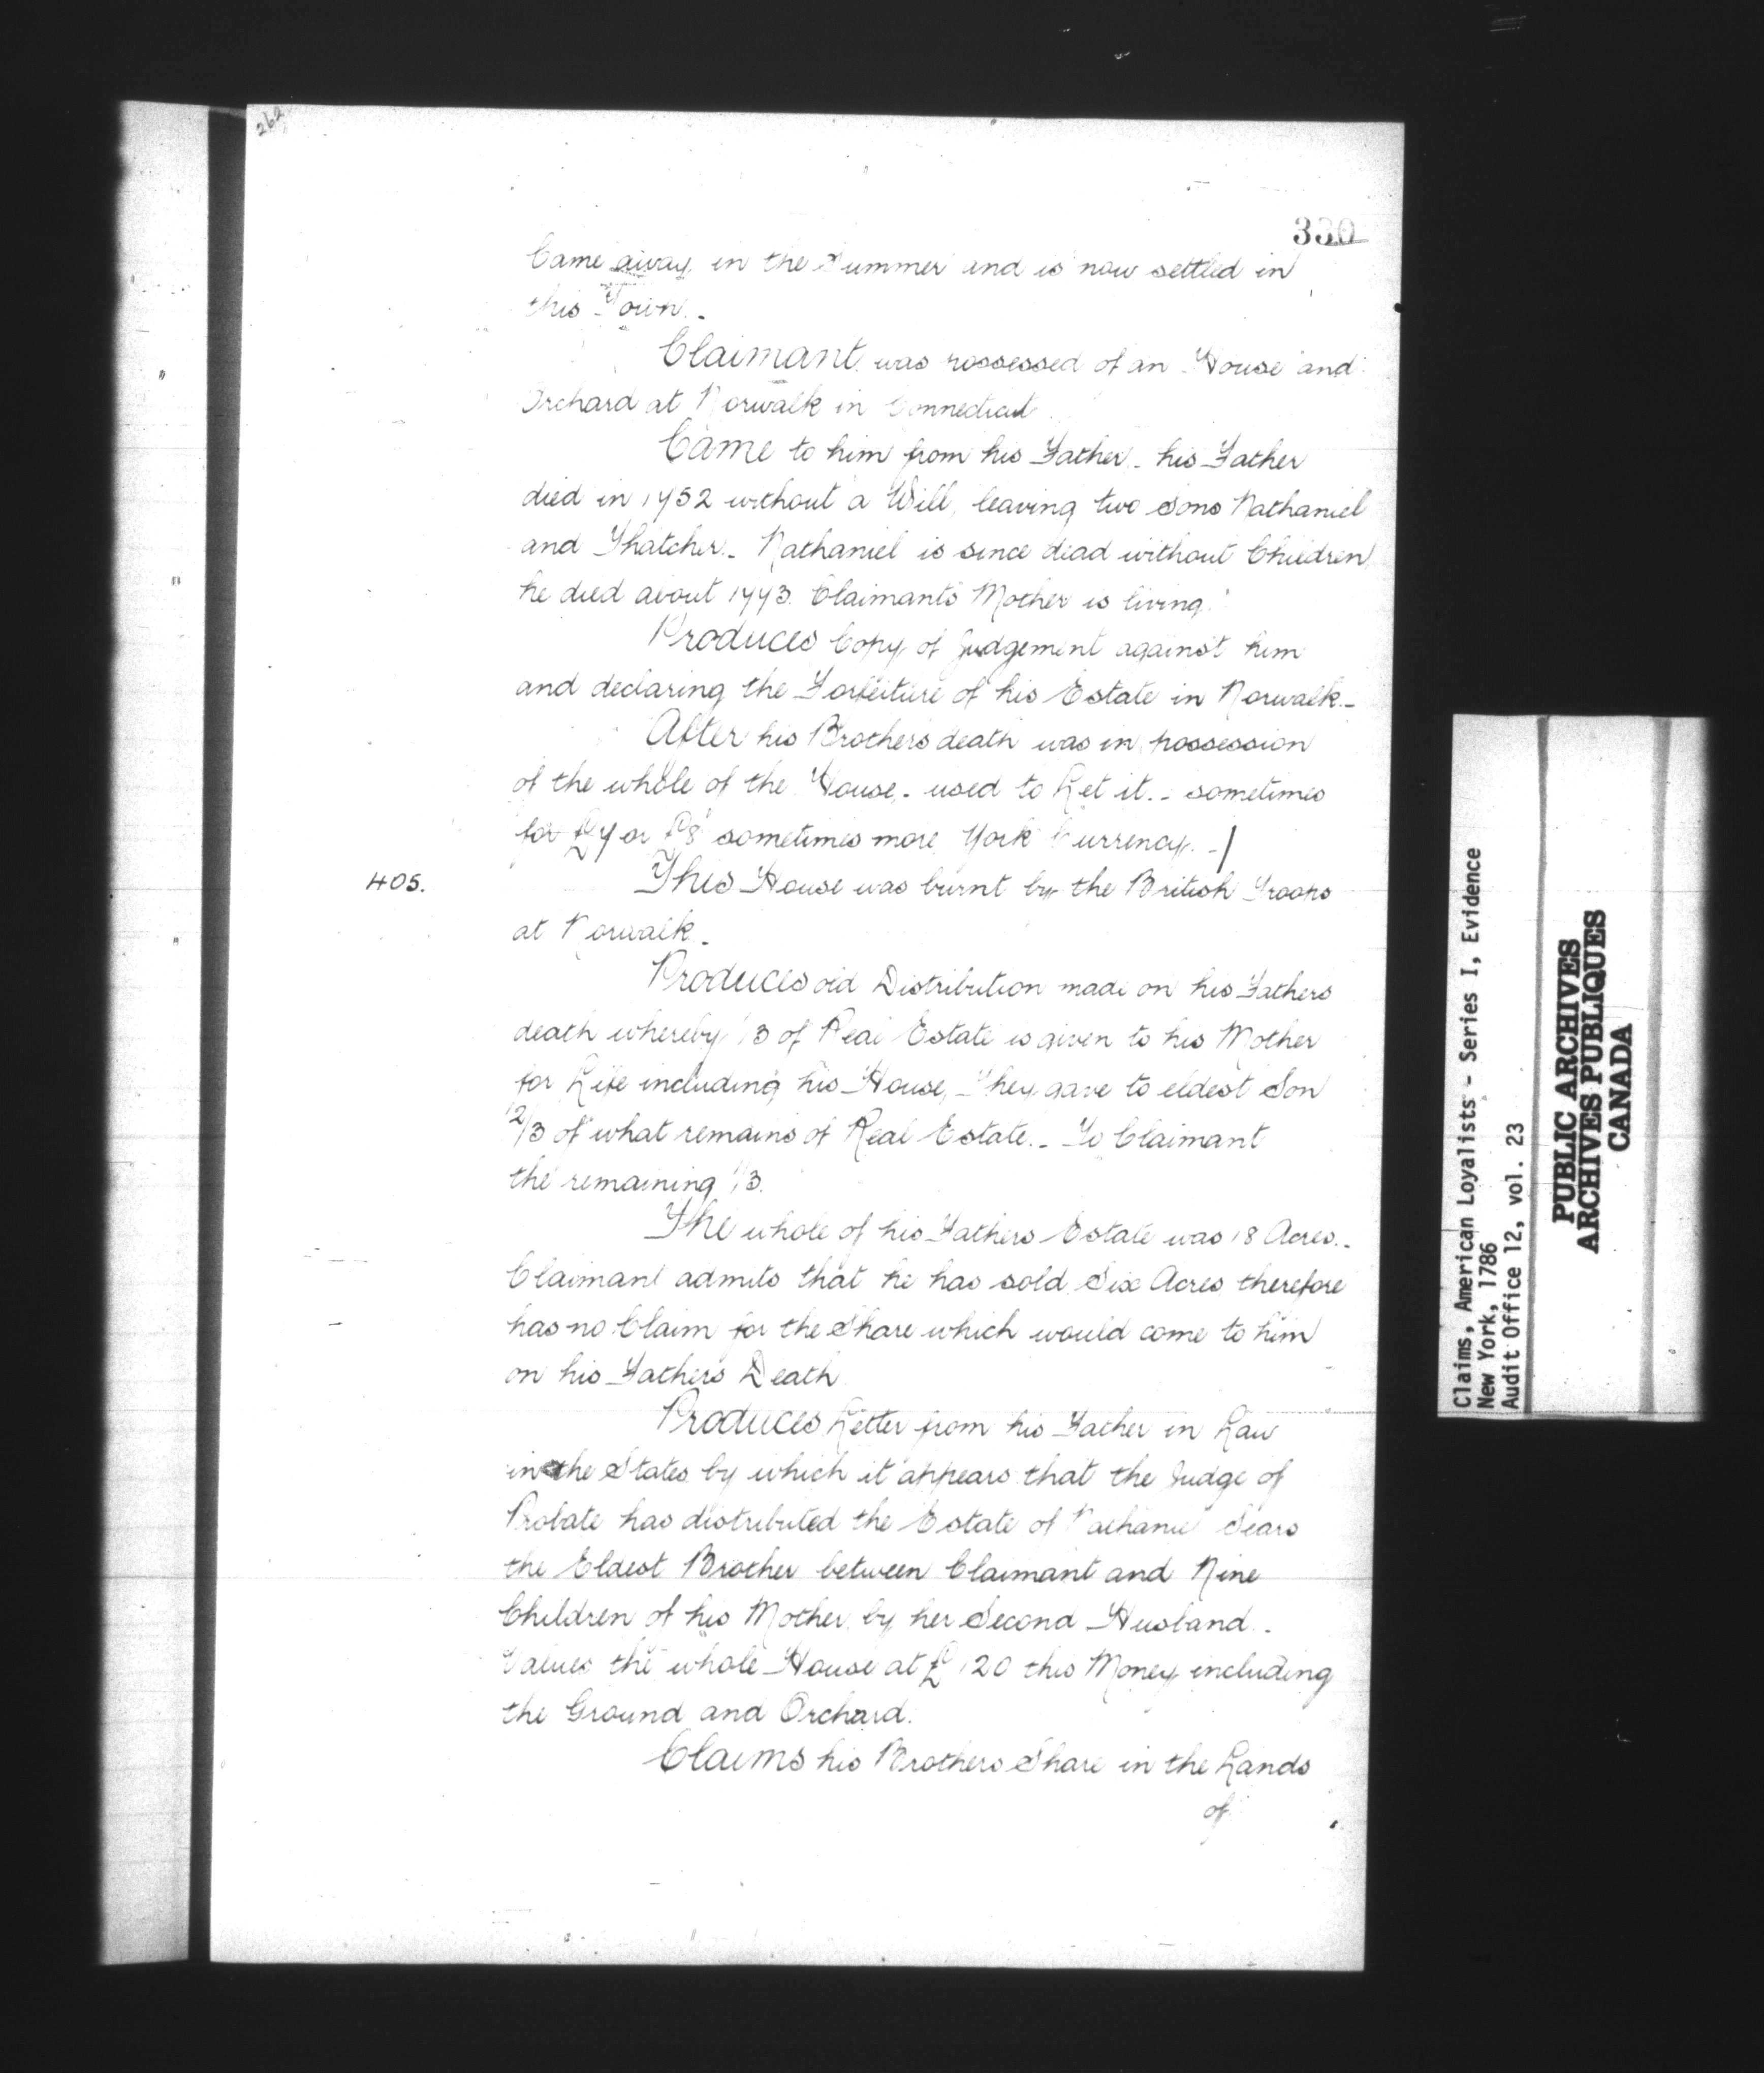 262
330
Came away in the Summer and is now settled in
this Town. -
Claimant was possessed of an House and
Orchard at Norwalk in Connecticut
Came to him from his Father - his Father
died in 1752 without a Will, leaving two Sons Nathaniel
and Thatcher - Nathaniel is since dead without Children
he died about 1773. Claimants Mother is living.
Produces Copy of Judgement against him
and declaring the Forfeiture of his Estate in Norwalk -
After his Brothers death was in possession
of the whole of the House - used to Let it. - sometimes
for £7 or £8 sometimes more York Currency. - /
405.
This House was burnt by the British Troops
at Norwalk -
Produces old Distribution made on his Fathers
death whereby 1/3 of Real Estate is given to his Mother
for Life including his House, - They gave to eldest Son
2/3 of what remains of Real Estate. - To Claimant
the remaining 1/3.
The whole of his Fathers Estate was 18 Acres. -
Claimant admits that he has sold Six Acres therefore
has no Claim for the Share which would come to him
on his Fathers Death
Produces Letter from his Father in Law
in the States by which it appears that the Judge of
Probate has distributed the Estate of Nathaniel Sears
the Eldest Brother between Claimant and Nine
Children of his Mother by her Second Husband -
Values the whole House at £120 this Money including
the Ground and Orchard.
Claims his Brothers Share in the Lands
of
Claims, American Loyalists - Series I, Evidence
New York, 1786
Audit Office 12, vol. 23
PUBLIC ARCHIVES
ARCHIVES PUBLIQUES
CANADA